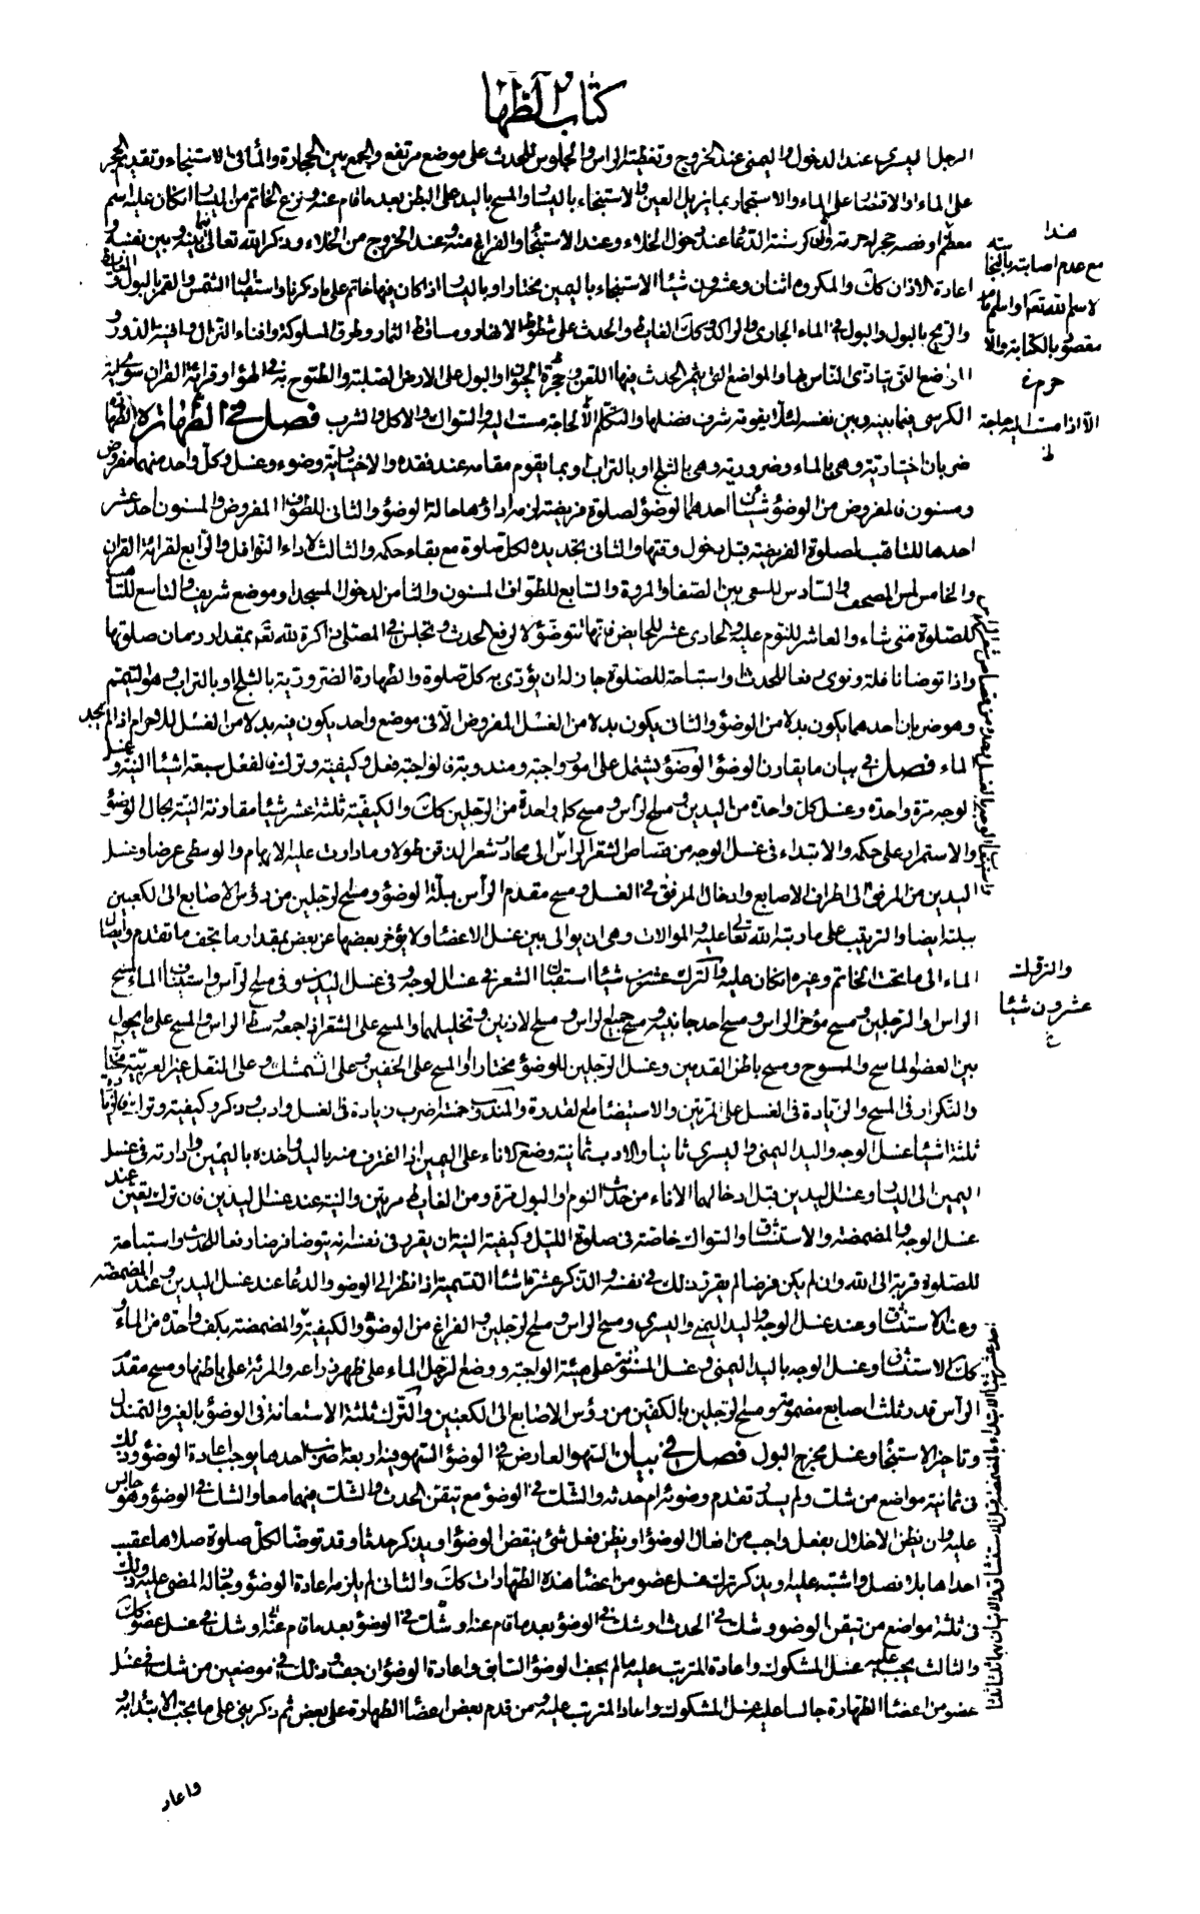 كتاب الطهارة
الرجل اليسرى عند الدخول واليمنى عند الخروج وتغطية الراس والجلوس للحدث على موضع مرتفع والجمع بين الحجارة والماء فى الاستنجاء وتقديم الحجر
على الماء او الاقتصار على الماء والاستجمار بما يزيل العين والاستنجاء باليسار والمسح باليد على البطن بعد ما قام عنه ونزع الخاتم من اليسار ان كان عليه اسم
معظم او فصه حجر له حرمة والدعاء عند دخول الخلاء وعند الاستنجاء والفراغ منه وعند الخروج من الخلاء وذكر الله تعالى بينه وبين نفسه و
اعادة الاذان كك والمكروه اثنان وعشرون شيئا الاستنجاء باليمين مختارا وباليسار اذا كان فيها خاتم على ما ذكرنا واستقبال الشمس والقمر بالبول والغائط
والريح بالبول والبول فى الماء الجارى والراكد وكك الغايط والحدث على شطوط الانهار ومساقط الثمار وطرق المسلوكة وافناء النزال وافنية الدور و
المواضع التى يتاذى الناس بها والمواضع التى يتم الحدث فيها اللعن وجحرة الحيوان والبول على الارض الصلبة والطموح به فى الهواء وقرائة القران سوى اية
الكرسى فيما بينه وبين نفسه لئلا يفوته شرف فضلها والتكلم الا لحاجة مست اليه والسواك والاكل والشرب فصل فى الطهارة الطهارة
ضربان اختيارية وهى بالماء وضرورية وهى بالثلج او بالتراب او بما يقوم مقامه عند فقده والاختيارية وضوء وغسل وكل واحد منهما مفروض
ومسنون فالمفروض من الوضوء شيئان احدهما الوضوء لصلوة فريضة لزمه اداؤها حالة الوضوء والثانى للطواف المفروض والمسنون احد عشر
احدها للتاهب لصلوة الفريضة قبل دخول وقتها والثانى تجديده لكل صلوة مع بقاء حكمه والثالث لاداء النوافل والرابع لقرائة القران
والخامس لمس المصحف والسادس للسعى بين الصفا والمروة والسابع للطواف المسنون والثامن لدخول المسجد او موضع شريف والتاسع للتاهب
للصلوة متى شاء والعاشر للنوم عليه والحادى عشر للحايض فانها تتوضؤ لا لرفع الحدث وتجلس فى المصلى ذاكرة لله تعم بمقدار زمان صلوتها
واذا توضا نافلة ونوى رفعا للحدث واستباحة للصلوة جاز له ان يؤدى به كل صلوة والطهارة الضرورية بالثلج او بالتراب وهو التيمم
وهو ضربان احدهما يكون بدلا من الوضوء والثانى يكون بدلا من الغسل المفروض الا فى موضع واحد يكون فيه بدلا من الغسل للاحرام اذا لم يجد
الماء فصل فى بيان ما يقارن الوضوء الوضوء يشتمل على امور واجبة ومندوبة فالواجبة فعل وكيفية وترك فالفعل سبعة اشياء النية وغسل
الوجه مرة واحدة وغسل كل واحدة من اليدين ومسح الراس ومسح كل واحدة من الرجلين كك والكيفية ثلثة عشر شيئا مقارنة النية بحال الوضوء
والاستمرار على حكمه والابتداء فى غسل الوجه من قصاص الشعر الراس الى محادر شعر الذقن طولا وما دارت عليه الابهام والوسطى عرضا وغسل
اليدين من المرفق الى اطراف الاصابع وادخال المرفق فى الغسل ومسح مقدم الراس ببلة الوضوء ومسح الرجلين من رؤس الاصابع الى الكعبين
ببلته ايضا والترتيب على ما رتبه الله تعالى عليه والموالات وهى ان يوالى بين غسل الاعضاء ولا يؤخر بعضها عن بعض بمقدار ما يجف ما تقدم وايصال
الماء الى ما تحت الخاتم وغيره ان كان عليه والترك عشرون شيئا استقبال الشعر فى غسل الوجه وفى غسل اليدين وفى مسح الراس واستيناف الماء لمسح
الراس والرجلين ومسح مؤخر الراس ومسح احد جانبيه ومسح جميع الراس ومسح الاذنين وتخليلهما والمسح على الشعر اذا جمعه وسط الراس والمسح على ما يحول
بين العضو الماسح والممسوح ومسح باطن القدمين وغسل الرجلين للوضوء مختارا والمسح على الخفين وعلى الشمشك وعلى النعل غير العربية مختارا
والتكرار فى المسح والزيادة فى الغسل على المرتين والاستيضاء مع القدرة والمندوب خمسة اضرب زيادة فى الغسل وادب وذكر وكيفية وترك فالزيادة
ثلثة اشياء غسل الوجه واليد اليمنى واليسرى ثانيا والادب ثمانية وضع الاناء على اليمين اذا اغترف منه باليد واخذه باليمين وادارته فى غسل
اليمين الى اليسار وغسل اليدين قبل ادخالهما الاناء من حدث النوم والبول مرة ومن الغايط مرتين والنية عند غسل اليدين فان ترك تعين عند
غسل الوجه والمضمضة والاستنشاق والسواك خاصة فى صلوة الليل وكيفية النية ان يقرر فى نفسه انه يتوضا فرضا رفعا للحدث واستباحة
للصلوة قربة الى الله وان لم يكن فرضا لم يقرر ذلك فى نفسه والذكر عشرة اشياء التسمية اذا نظر الى الوضوء والدعاء عند غسل اليدين وعند المضمضة
وعند الاستنشاق وعند غسل الوجه واليد اليمنى واليسرى ومسح الراس ومسح الرجلين والفراغ من الوضوء والكيفية المضمضة بكف واحدة من الماء و
كك الاستنشاق وغسل الوجه باليد اليمنى وغسل المسنون على هيئة الواجبة ووضع الرجل الماء على ظهر ذراعه والمرئة على باطنها ومسح مقدم
الراس قدر ثلث اصابع مضمومة ومسح الرجلين بالكفين من رؤس الاصابع الى الكعبين والترك ثلثة الاستعانة فى الوضوء بالغير والتمندل
وتاخير الاستنجاء وغسل مخرج البول فصل فى بيان السهو العارض فى الوضوء السهو فيه اربعة اضرب احدها يوجب اعادة الوضوء وذلك
فى ثمانية مواضع من شك ولم يدر تقدم وضوئه ام حدثه والشك فى الوضوء مع تيقن الحدث والشك فيهما معا والشك فى الوضوء وهو جالس
عليه وان يظن الاخلال بفعل واجب من افعال الوضوء او يظن فعل شئ ينقض الوضوء او يذكر حدثا وقد توضا لكل صلوة صلاها عقيب
احداها بلا فصل واشتبه عليه او يذكر ترك غسل عضو من اعضاء هذه الطهارات كك والثانى لم يلزمه اعادة الوضوء وجاز له المضى عليه وذلك
فى ثلثة مواضع من تيقن الوضوء وشك فى الحدث او شك فى الوضوء بعد ما قام عنه او شك فى الوضوء بعد ما قام عنه او شك فى غسل عضو كك
والثالث يجب عليه غسل المشكوك واعادة المرتب عليه ما لم يجف الوضوء السابق واعادة الوضوء ان جف وذلك فى موضعين من شك فى غسل
عضو من اعضاء الطهارة جالسا عليه غسل المشكوك واعاد المرتب عليه ومن قدم بعض اعضاء الطهارة على بعض ثم ذكر بنى على ما يجب الابتداء به و
واعاد
هذا
مع عدم اصابته بالنجاسة
لاسم الله تعم
مقصود بالكتابة والا
حرم
الا اذا مست اليه حاجة
والترك
عشرون شيئا